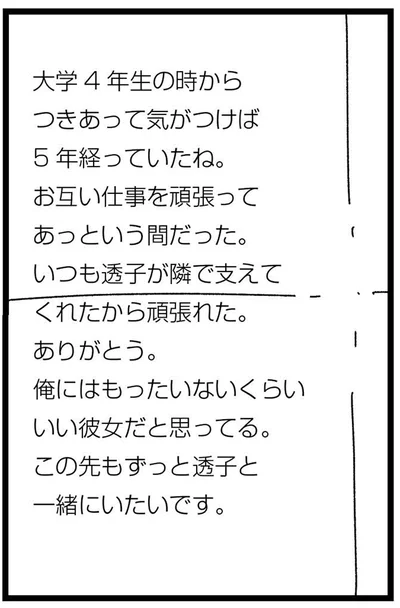 大学4年生の時から
つきあって気がつけば
5年経っていたね。
お互い仕事を頑張って
あっという間だった。
いつも透子が隣で支えて
くれたから頑張れた。
ありがとう。
俺にはもったいないくらい
いい彼女だと思ってる。
この先もずっと透子と
一緒にいたいです。